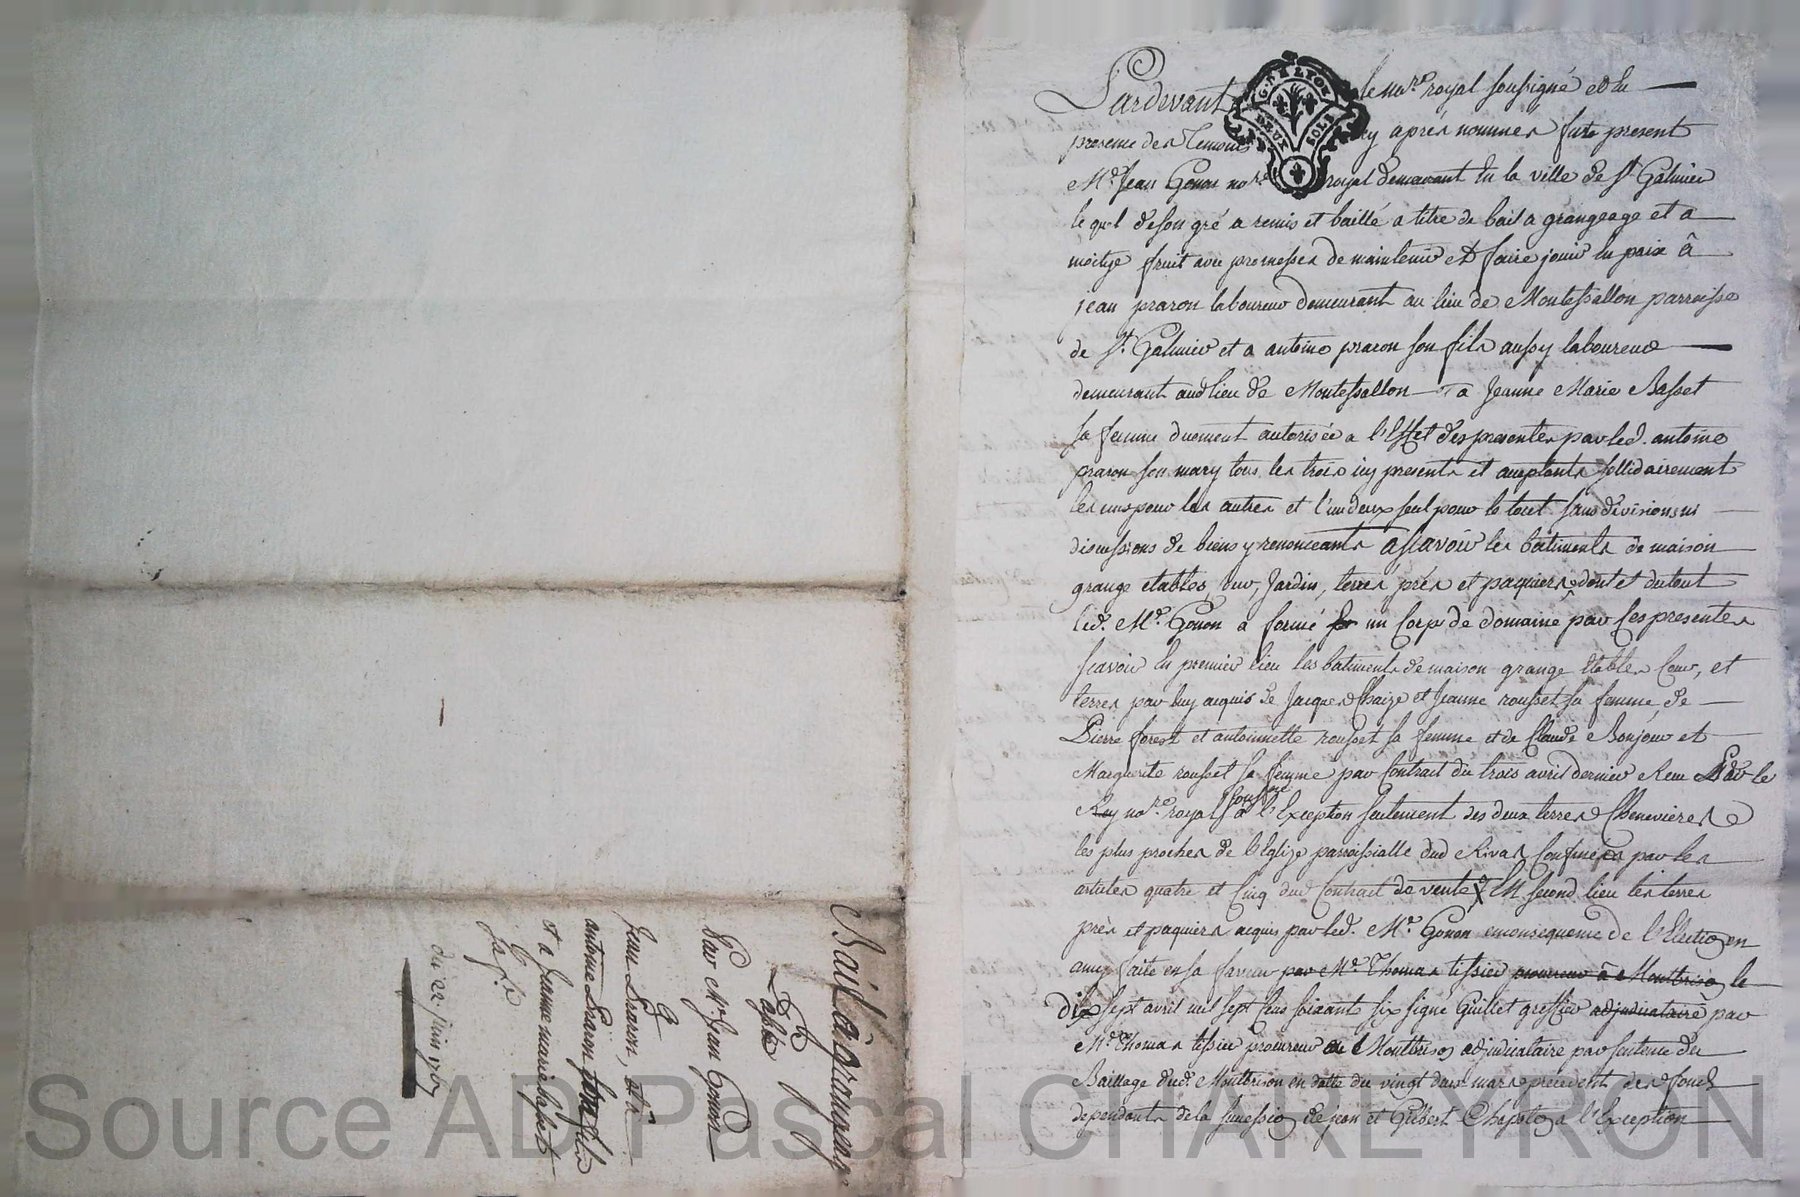 Bail a grangeage
Par Mr Jean Gonon
a
Jean Praron, et a
antoine Praron son fils
et a Jeanne marie basset
sa fe
du 22 juin 1767
G. DE LYON
DEUX SOLS
Pardevant le nore royal soussigné et en
presence des temoins cy aprés nommés fut present
Me Jean Gonon nore royal demeurant en la ville de St Galmier
le quel de son gré a remis et baillé a titre de bail a grangeage et a
moitye fruit avec promesses de maintenir et faire jouir en paix à
jean praron laboureur demeurant au lieu de Montessallon parroisse
de St Galmier et a antoine praron son fils aussy laboureur
demeurant audlieu de Montessallon a Jeanne Marie Basset
sa femme duement autorisée a l'Effet des presentes par led. antoine
praron son mary tous les trois icy presents et acceptants sollidairement
les uns pour les autres et l'un deux seul pour le tout sans divisions ni
discussions de biens y renonceants asçavoir les batiments de maison
grange etables, cour, Jardin, terres, prés et paquiers dont et du tout
led. Me Gonon a formé un Corps de domaine par Ces presentes
sçavoir en premier lieu les batiments de maison grange Etables Cour, et
terres par luy acquis de Jacques Chaize et Jeanne rousset sa femme, de
Pierre forest et antoinette rousset sa femme et de Claude Bonjour et
Marguerite rousset sa femme par Contrat du trois avril dernier Reçu Par le
Rey nore royal soussigné a l'Exception seulement des deux terres Chenevieres
les plus proches de l'Eglize parroissialle dud Rivas Confinées par les
articles quatre et Cinq dud Contrat de vente, En second lieu les terres
prés et paquiers acquis par led. Me Gonon en consequence de l'Election en
amy faite en sa faveur par Me Thomas tissier procureur à Montbrison le
dix sept avril mil sept Cens soixante six signé Guillet greffier adjudicataire par
Me Thomas tissier procureur a Montbrison adjudicataire par sentence du
Baillage dud. Montbrison en datte du vingt deux mars precedent des fonds
dependants de la succession de jean et Gilbert Chapot a l'Exception
Source AD Pascal CHAREYRON